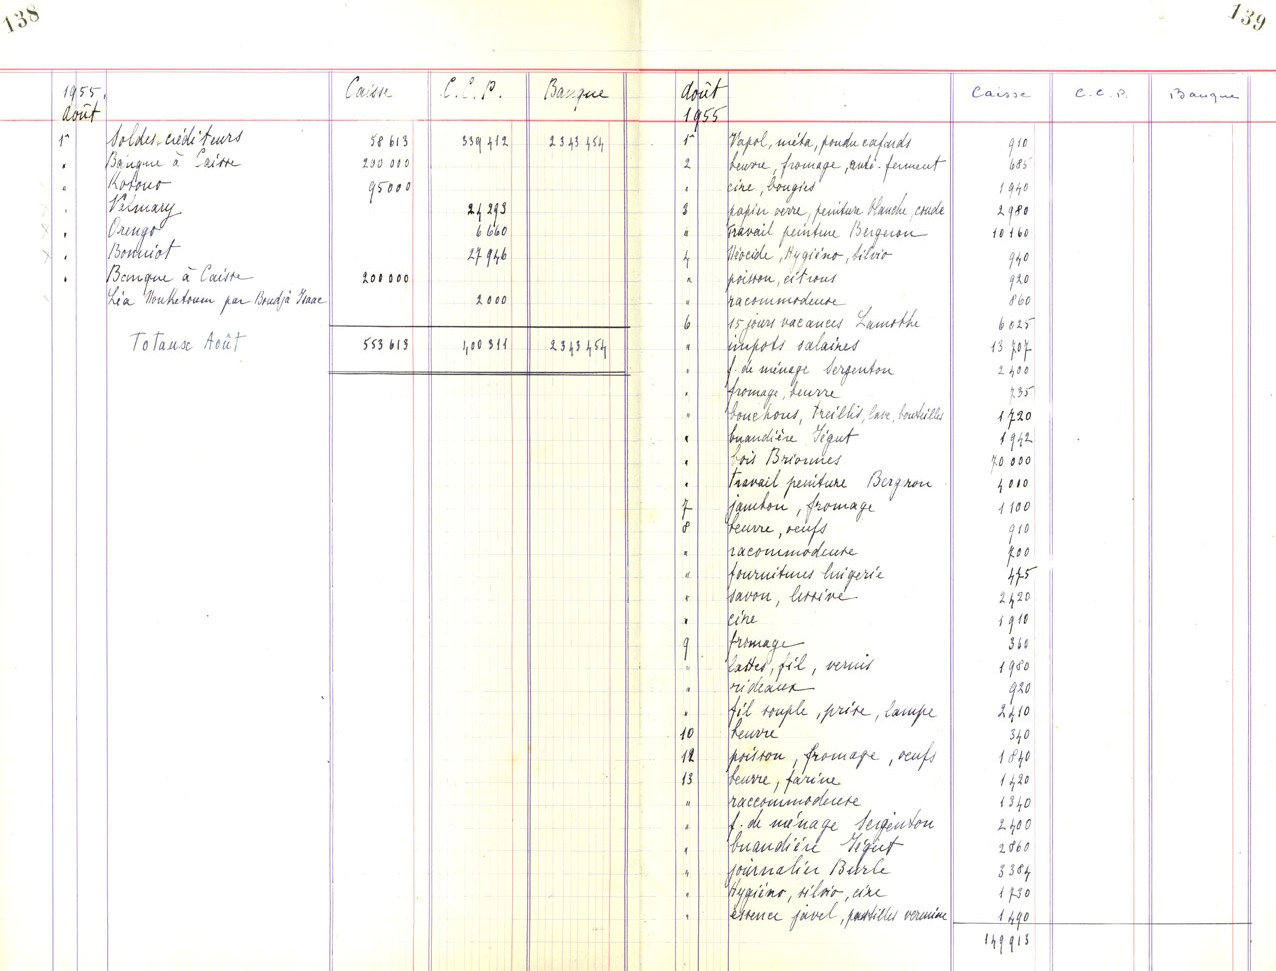 138
1955. Caisse C.C.P. Banque
Août
1er Soldes créditeurs 58 613 339 412 2 343 454
" Banque à Caisse 200 000
" 95000
" 24 293
" Orengo 6 660
" Bonniot 27 946
" Banque à Caisse 200 000
Léa par Boudjà Isaac 2 000
Totaux Août 553 613 400 311 2 343 454
139
Août Caisse C.C.P. Banque
1955
1er Vapol, méta, poudre cafards 910
2 beurre, fromage, anti-ferment 685
" cire, bougies 1 940
3 papier verre, peinture blanche, coude 2 980
" travail peinture Bergeron 10 160
4 Néocide, Hygiéno, Silvio 940
" poisson, citrons 920
" racommodeuse 860
6 15 jours vacances Lamothe 6 025
" impots salaires 13 707
" f. de ménage Sergenton 2 400
" fromage, beurre 735
" bouchons, treillis, lave, bouteilles 1 720
" buandière Ségut 1 942
" bois Brionnes 70 000
" travail peinture Bergeron 4 000
7 jambon, fromage 1 100
8 beurre, oeufs 910
" racommodeuse 700
" fournitures lingerie 475
" savon, lessive 2 420
" cire 1 910
9 fromage 360
" lattes, fil, vernis 1 980
" rideaux 920
" fil souple, prise, lampe 2 410
10 beurre 340
12 poisson, fromage, oeufs 1 840
13 beurre, farine 1 420
" raccommodeuse 1 340
" f. de ménage Sergenton 2 400
" buandière Ségut 2 860
" journalier Burle 3 384
" Hygiéno, silvio, cire 1 730
" essence javel, pastilles vermine 1 490
149 913